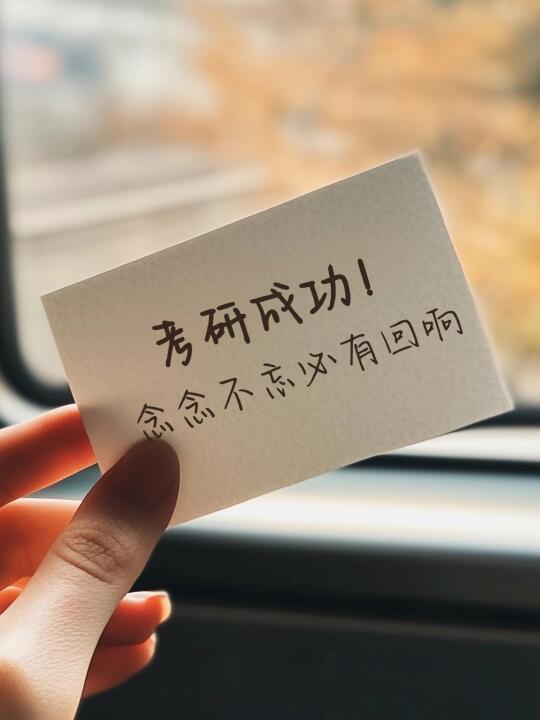 考研成功!
念念不忘必有回响